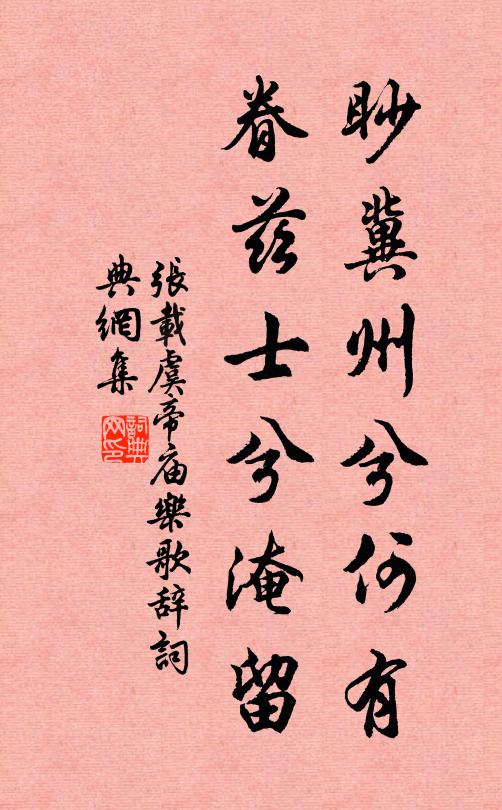 眇冀州兮何有
眷茲士兮淹留
張載虞帝庙樂歌辞詞
典網集
詞典
网印